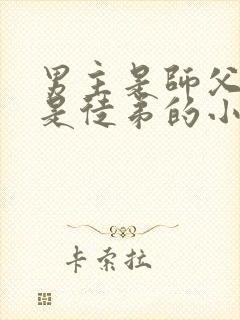 男主是師父
是徒弟的小
卡索拉